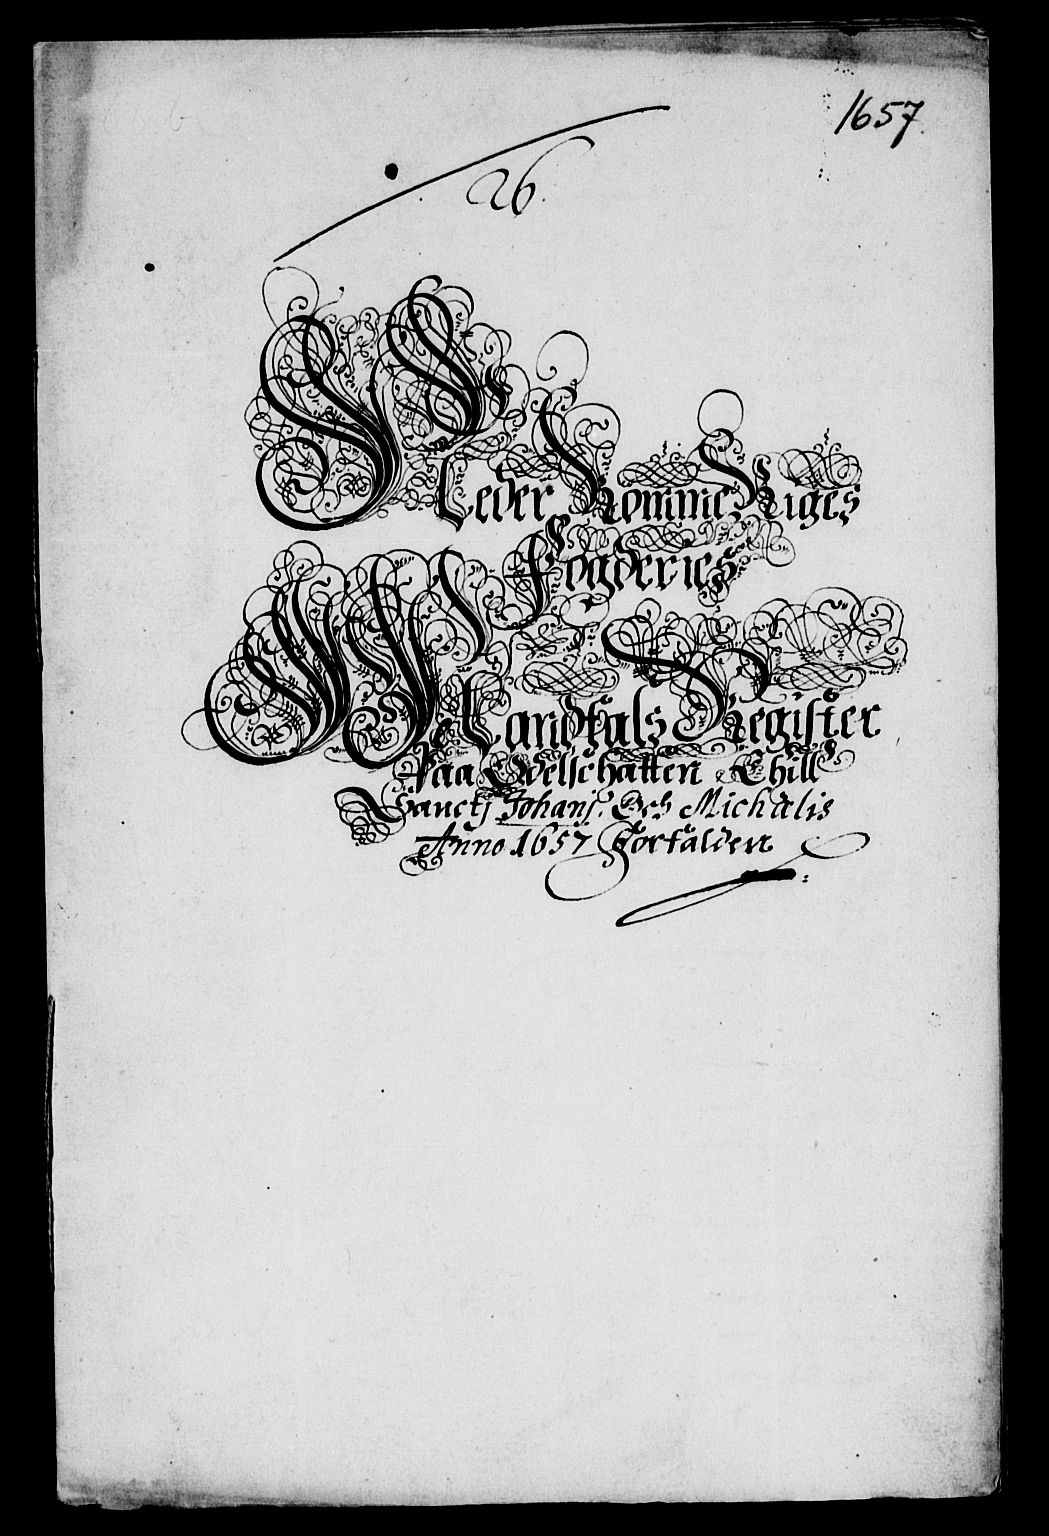 1657
26
Neder Rommeriges
Fogderies
Mandtals Register
Paa Odelschatten Thill
Sanctj Johanj. Och Michælis
Anno 1657 Forfalden